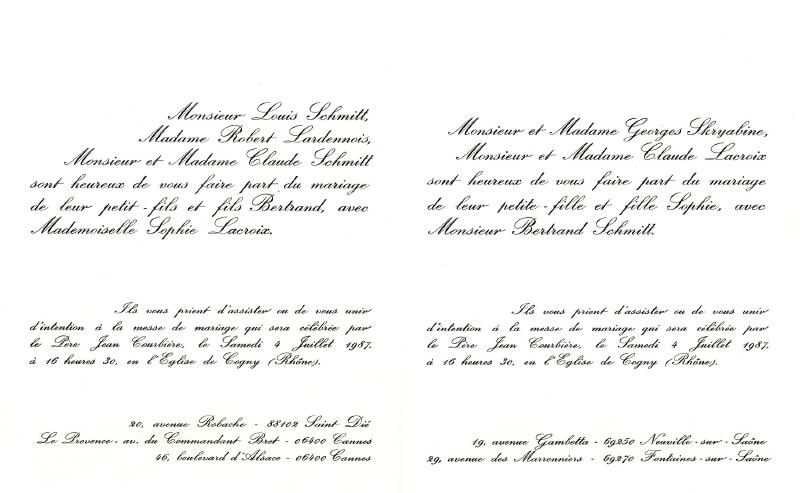 Monsieur Louis Schmitt,
Madame Robert Lardennois,
Monsieur et Madame Claude Schmitt
sont heureux de vous faire part du mariage
de leur petit-fils et fils Bertrand, avec
Mademoiselle Sophie Lacroix.
Ils vous prient d'assister ou de vous unir
d'intention à la messe de mariage qui sera célébrée par
le Père Jean Courbière, le Samedi 4 Juillet 1987,
à 16 heures 30, en l'Eglise de Cogny (Rhône).
20, avenue Robache - 88102 Saint Dié
Le Provence - av. du Commandant Bret - 06400 Cannes
46, boulevard d'Alsace - 06400 Cannes
Monsieur et Madame Georges Skryabine,
Monsieur et Madame Claude Lacroix
sont heureux de vous faire part du mariage
de leur petite-fille et fille Sophie, avec
Monsieur Bertrand Schmitt.
Ils vous prient d'assister ou de vous unir
d'intention à la messe de mariage qui sera célébrée par
le Père Jean Courbière, le Samedi 4 Juillet 1987,
à 16 heures 30, en l'Eglise de Cogny (Rhône).
19, avenue Gambetta - 69250 Neuville-sur-Saône
29, avenue des Marronniers - 69270 Fontaines-sur-Saône